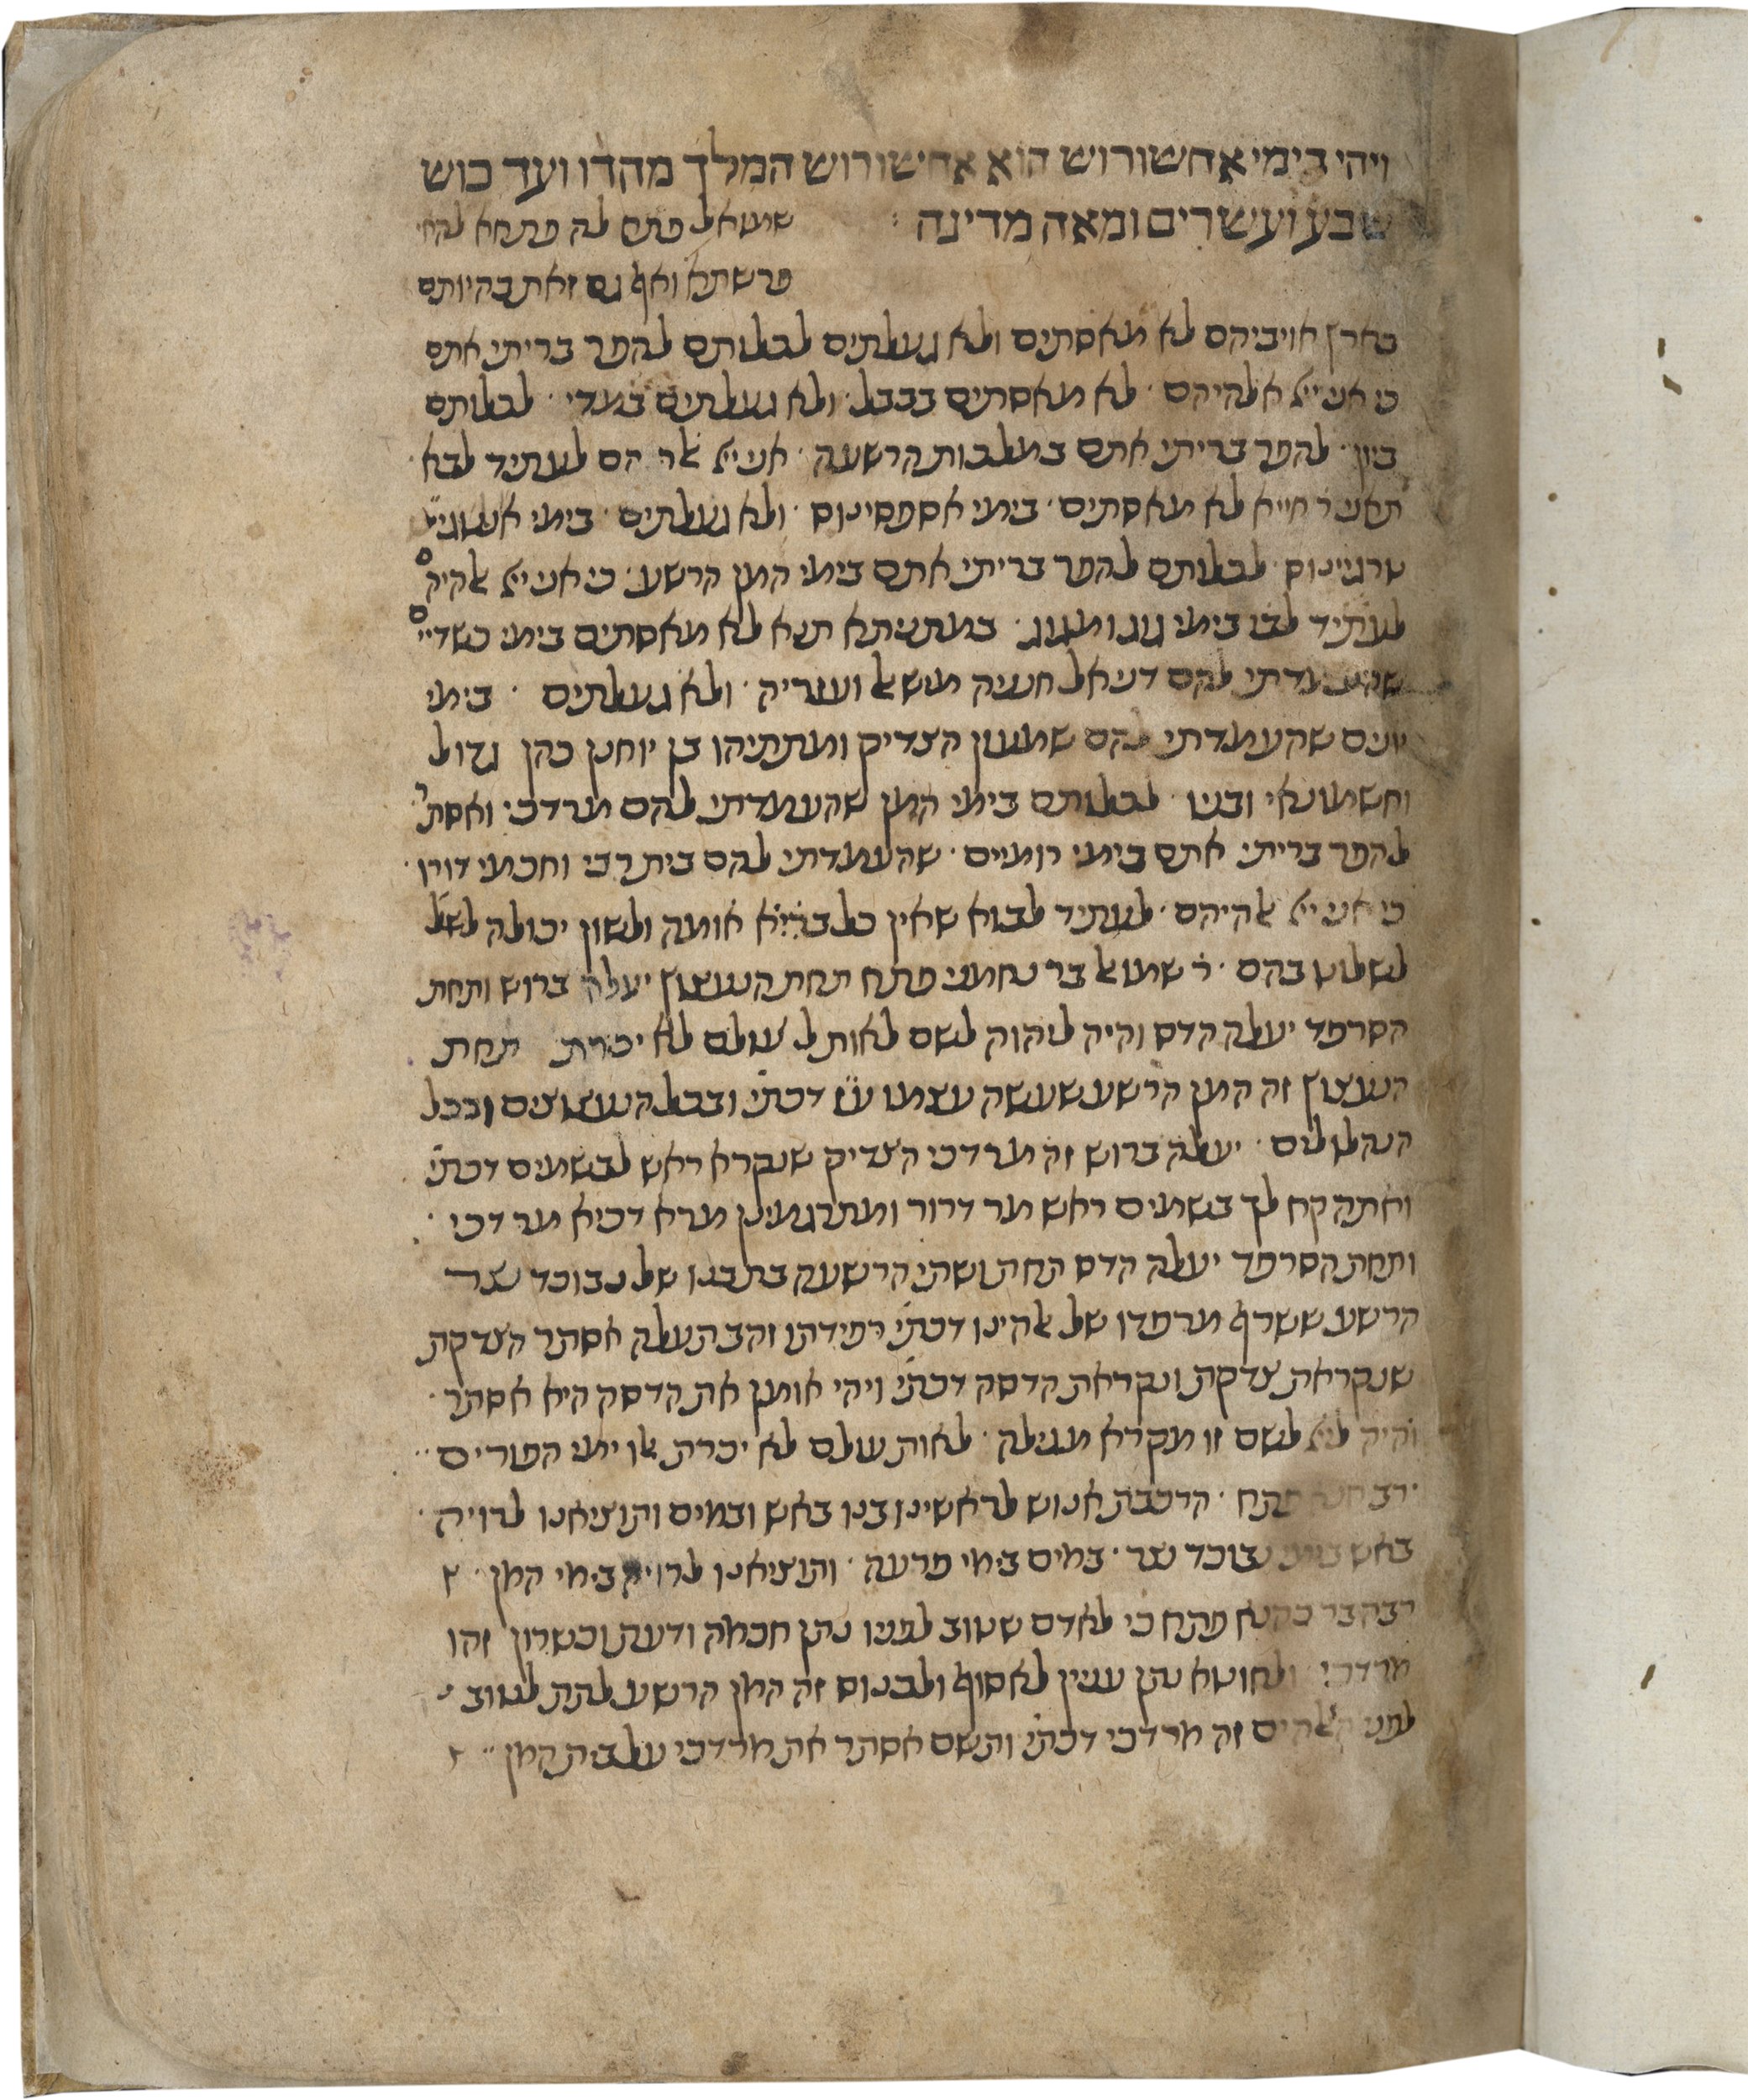 ויהי בימי אחשורוש הוא אחשורוש המלך מהדו ועד כוש
שבע ועשרים ומאה מדינה : שמואל פתח לה פתחא להאי
פרשתא ואף גם זאת בהיותם
בארץ אויביהם לא מאסתים ולא געלתים לכלותם להפר בריתי אתם
כי אני ייי אלהיהם · לא מאסתים בבבל · ולא געלתים במדי · לכלותם
ביון · להפר בריתי אתם במלכות הרשעה · אני ייי אלהיהם לעתיד לבא ·
תאני ר חייא לא מאסתים · בימי אספסינוס · ולא געלתים · בימי
טרגיינוס · לכלותם להפר בריתי אתם בימי המן הרשע · כי אני ייי אלהיהם
לעתיד לבו בימי גוג ומגוג · במתניתא תנא לא מאסתים בימי כשדיי
שהעמדתי להם דניאל חנניה מישאל ועזריה · ולא געלתים · בימי
יונים שהעמדתי להם שמעון הצדיק ומתתיהו בן יוחנן כהן גדול
וחשמונאי ובניו · לכלותם בימי המן שהעמדתי להם מרדכי ואסתר
להפר בריתי אתם בימי רומיים · שהעמדתי להם בית רבי וחכמי דורו ·
כי אני ייי אלהיהם · לעתיד לבוא שאין כל אומה ולשון יכולה לשל
לשלוט בהם · ר שמואל בר נחמני פתח תחת הנעצוץ יעלה ברוש ותחת
הסרפד יעלה הדס והיה ליהוה לשם לאות ל עולם לא יכרת תחת
הנעצוץ זה המן הרשע שעשה עצמו ע״ז דכתי׳ ובכל הנעצוצים ובכל
הנהלולים · יעלה ברוש זה מרדכי הצדיק שנקרא ראש לבשמים דכתי׳
ואתה קח לך בשמים ראש מר דרור ומתרגמינן מרא דכיא מר דכי ·
ותחת הסרפד יעלה הדס תחת ושתי הרשעה בת בנו של נבוכד נצר
הרשע ששרף מרפדו של אלהינו דכתי׳ רפידתו זהב תעלה אסתר הצדקת
שנקראת צדקת ונקראת הדסה דכתי׳ ויהי אומן את הדסה היא אסתר ·
והיה לייי לשם זו מקרא מגילה · לאות עולם לא יכרת אלו ימי הפורים ··
רב פתח · הרכבת אנוש לראשינו בנו באש ובמים ותוציאנו לרויה ·
באש בימי נבוכד נצר · במים בימי פרעה · ותוציאנו לרויה בימי המן ·
רבה בר פתח כי לאדם שטוב לפניו נתן חכמה ודעת וכשרון זהו
מרדכי ולחוטא נתן עניין לאסוף ולכנוס זה המן הרשע לתת לטוב
לפני האלהים זה מרדכי דכתי׳ ותשם אסתר את מרדכי על בית המן ··